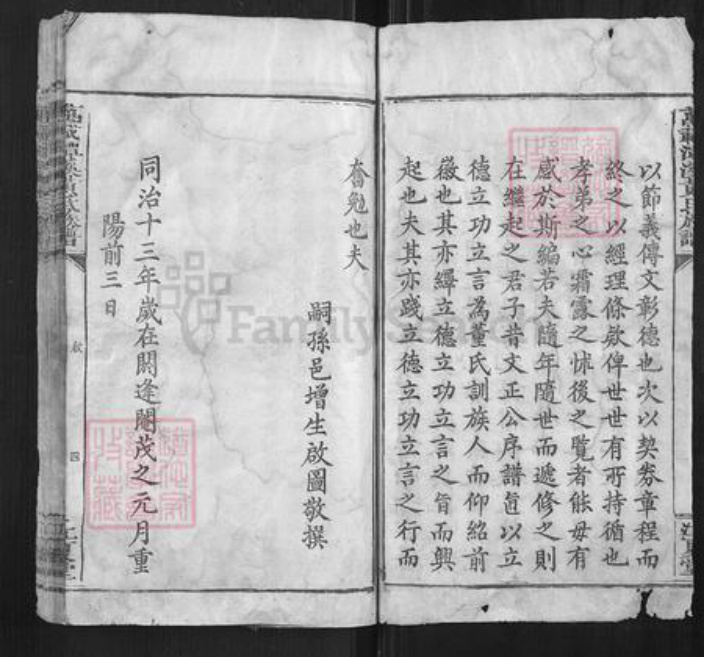 以節義傳文彰德也次以契券章程而
終之以經理條欵俾世世有所持循也
孝弟之心霜露之怵後之覽者能毋有
感於斯編若夫隨年隨世而遞修之則
在繼起之君子昔文正公序譜首以立
德立功立言為董氏訓族人而仰紹前
徽也其亦繹立德立功立言之旨而興
起也夫其亦踐立德立功立言之行而
奮勉也夫
嗣孫邑增生啟圖敬撰
同治十三年歲在閼逢閹茂之元月重
陽前三日
氏族譜
四
FamilySearch